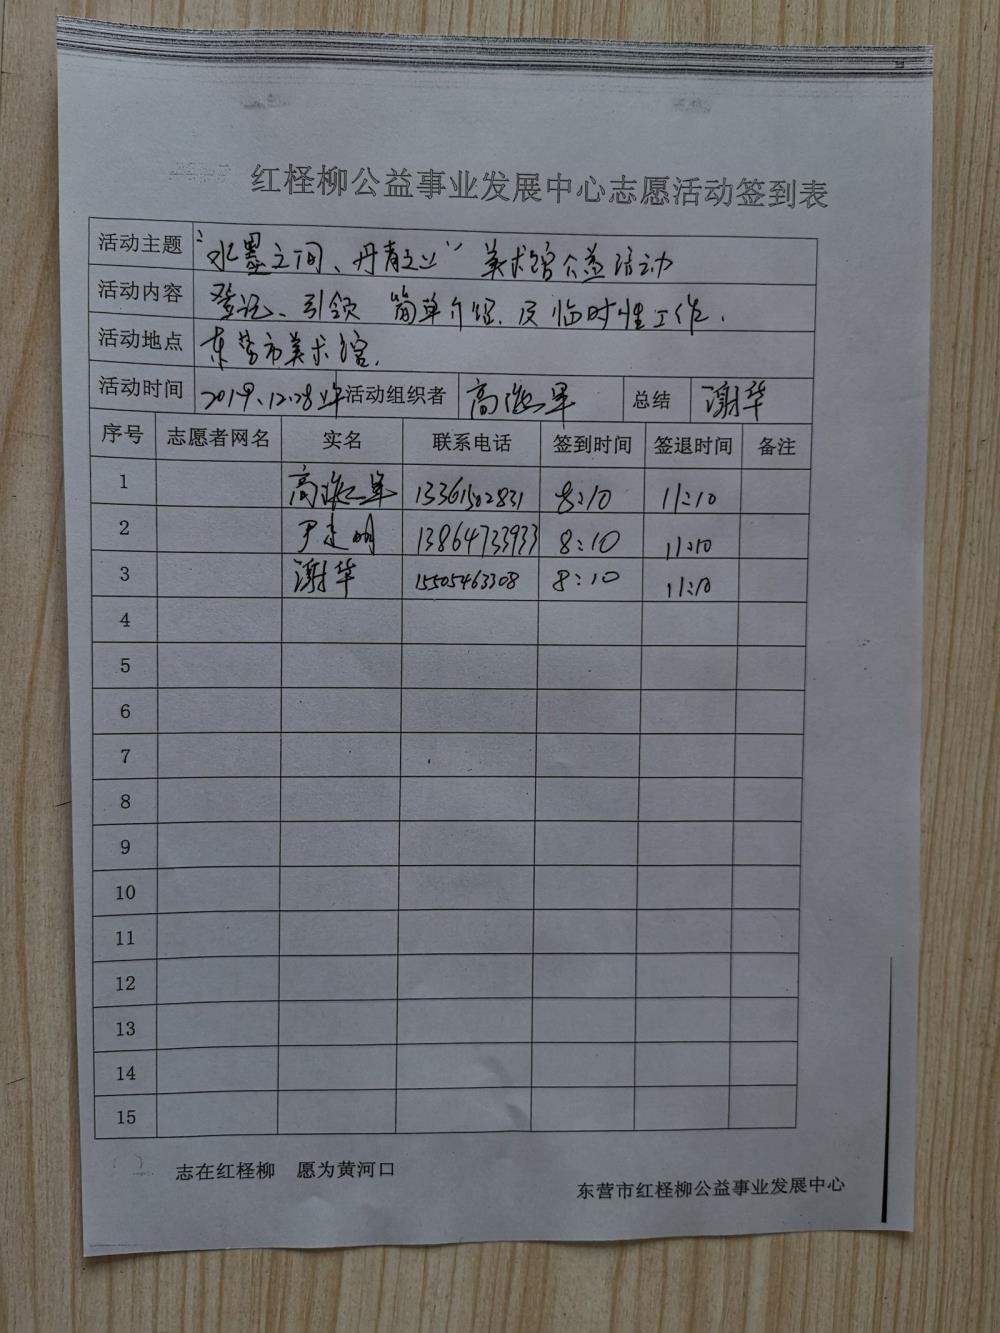 红柽柳公益事业发展中心志愿活动签到表
活动主题 "水墨之间、丹青之上" 美术馆公益活动
活动内容 登记、引领 简单介绍、及临时性工作.
活动地点 东营市美术馆.
活动时间 2019.12.28 活动组织者 高 军 总结 谢华
序号 志愿者网名 实名 联系电话 签到时间 签退时间 备注
1 高 军 13361502831 8:10 11:10
2 尹 明 13864733933 8:10 11:10
3 谢华 15505463308 8:10 11:10
4
5
6
7
8
9
10
11
12
13
14
15
志在红柽柳 愿为黄河口
东营市红柽柳公益事业发展中心